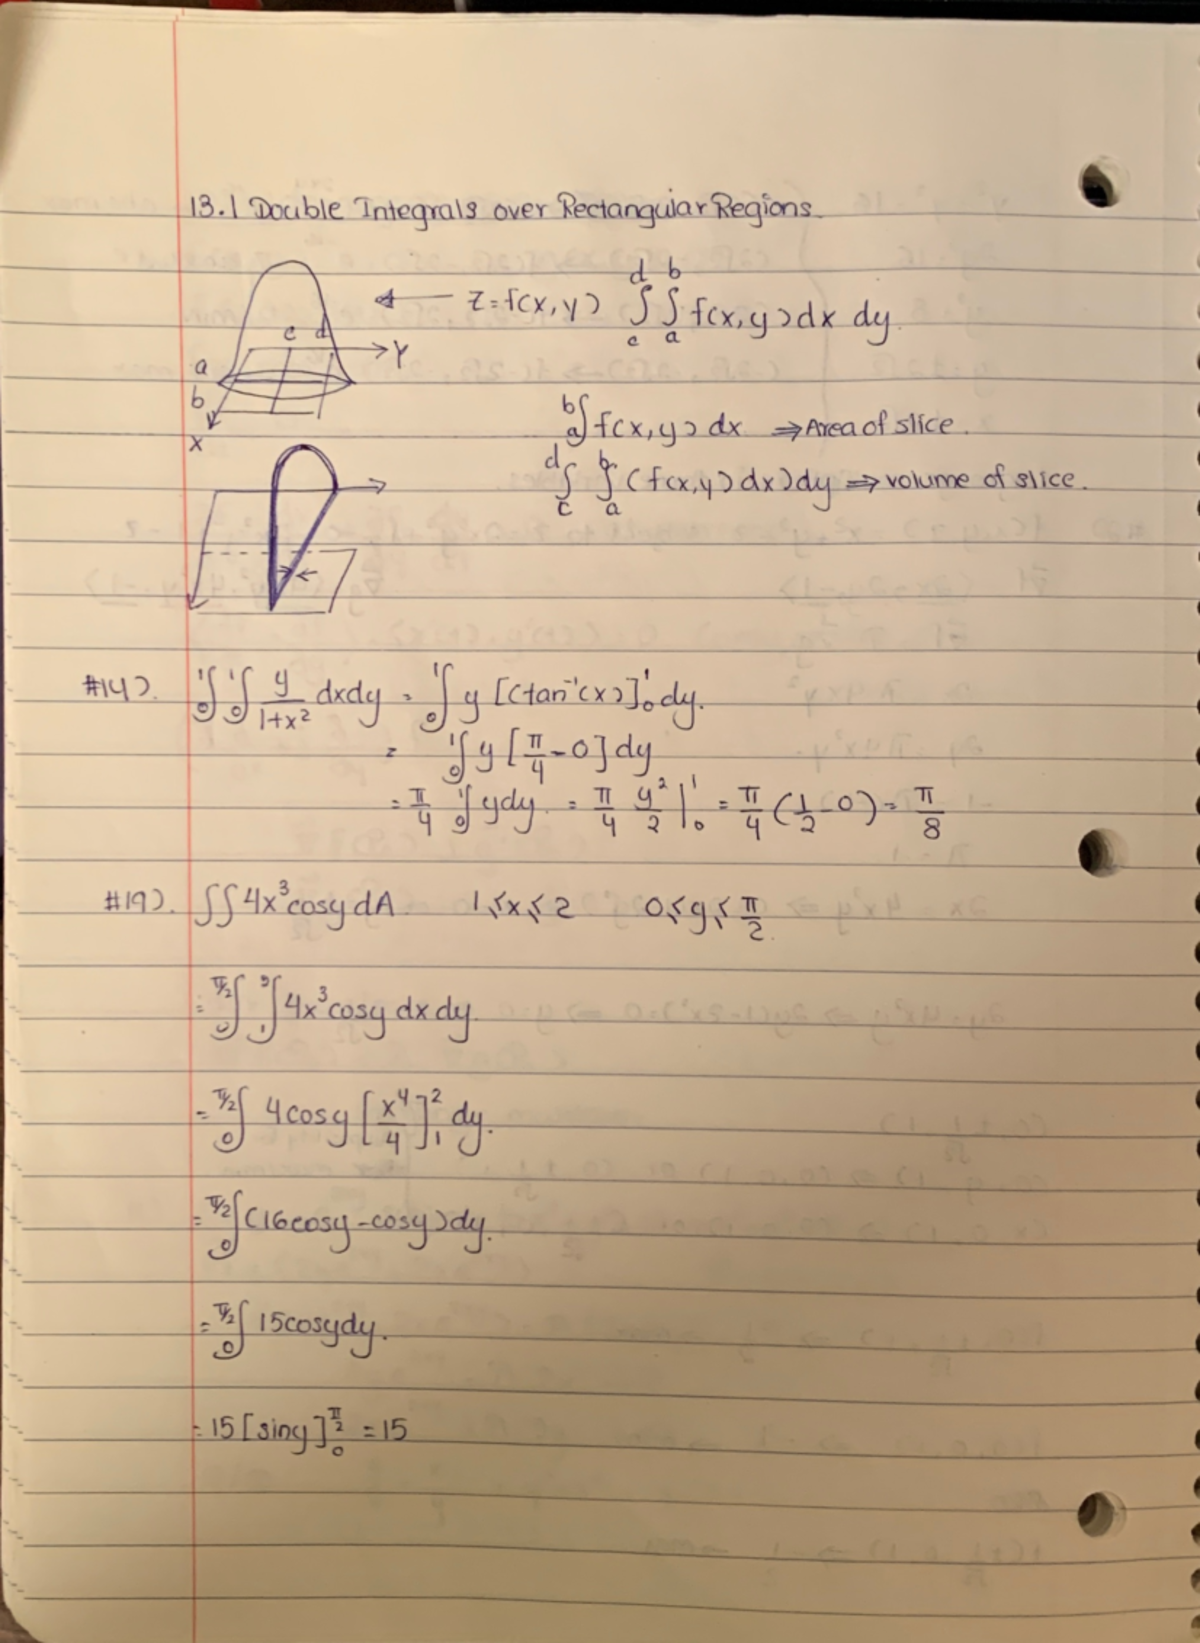 13.1 Double Integrals over Rectangular Regions.
c d
Y
a
b
x
z=f(x,y) ∫_c^d ∫_a^b f(x,y)dx dy.
∫_a^b f(x,y)dx ⇒ Area of slice.
∫_c^d ∫_a^b (f(x,y)dx)dy ⇒ volume of slice.
#14). ∫_0^1 ∫_0^1 y/(1+x²) dxdy = ∫_0^1 y [(tan⁻¹(x)]_0^1 dy.
= ∫_0^1 y [π/4 - 0] dy
= π/4 ∫_0^1 ydy = π/4 y²/2 |_0^1 = π/4 (1/2 - 0) = π/8
#19). ∫∫ 4x³cosy dA 1≤x≤2 0≤y≤π/2.
= ∫_0^{π/2} ∫_1 4x³cosy dx dy.
= ∫_0^{π/2} 4cosy [x⁴/4]_1^2 dy.
= ∫_0^{π/2} (16cosy - cosy)dy.
= ∫_0^{π/2} 15cosydy.
= 15 [siny]_0^{π/2} = 15